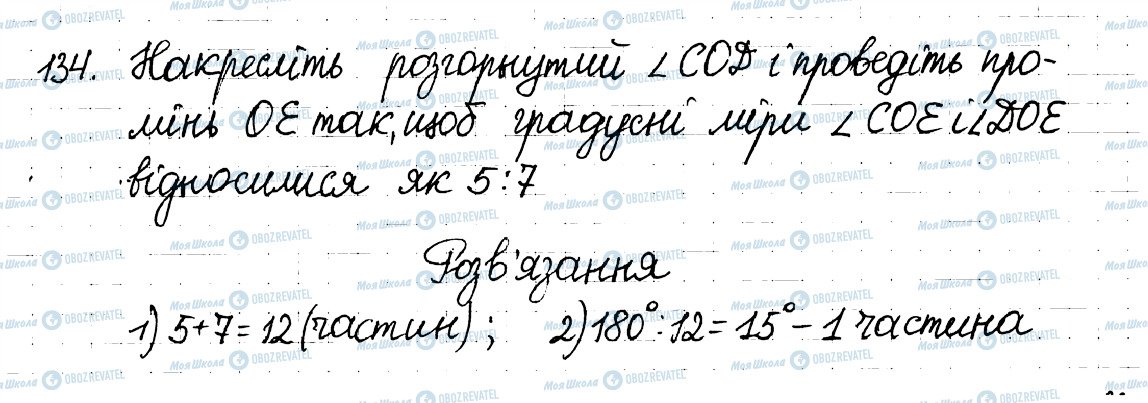 134. Накресліть розгорнутий ∠COD і проведіть про-
мінь OE так, щоб градусні міри ∠COE і ∠DOE
відносилися як 5:7
Розв'язання
1) 5+7=12 (частин); 2) 180°:12=15° – 1 частина